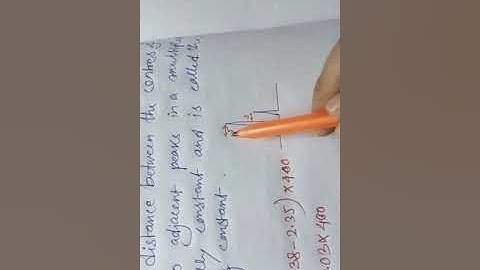 distance between the centres of
o adjacent peaks in a multip
ely constant and is called the
g constant.
38 - 2.35) × 400
.03 × 400